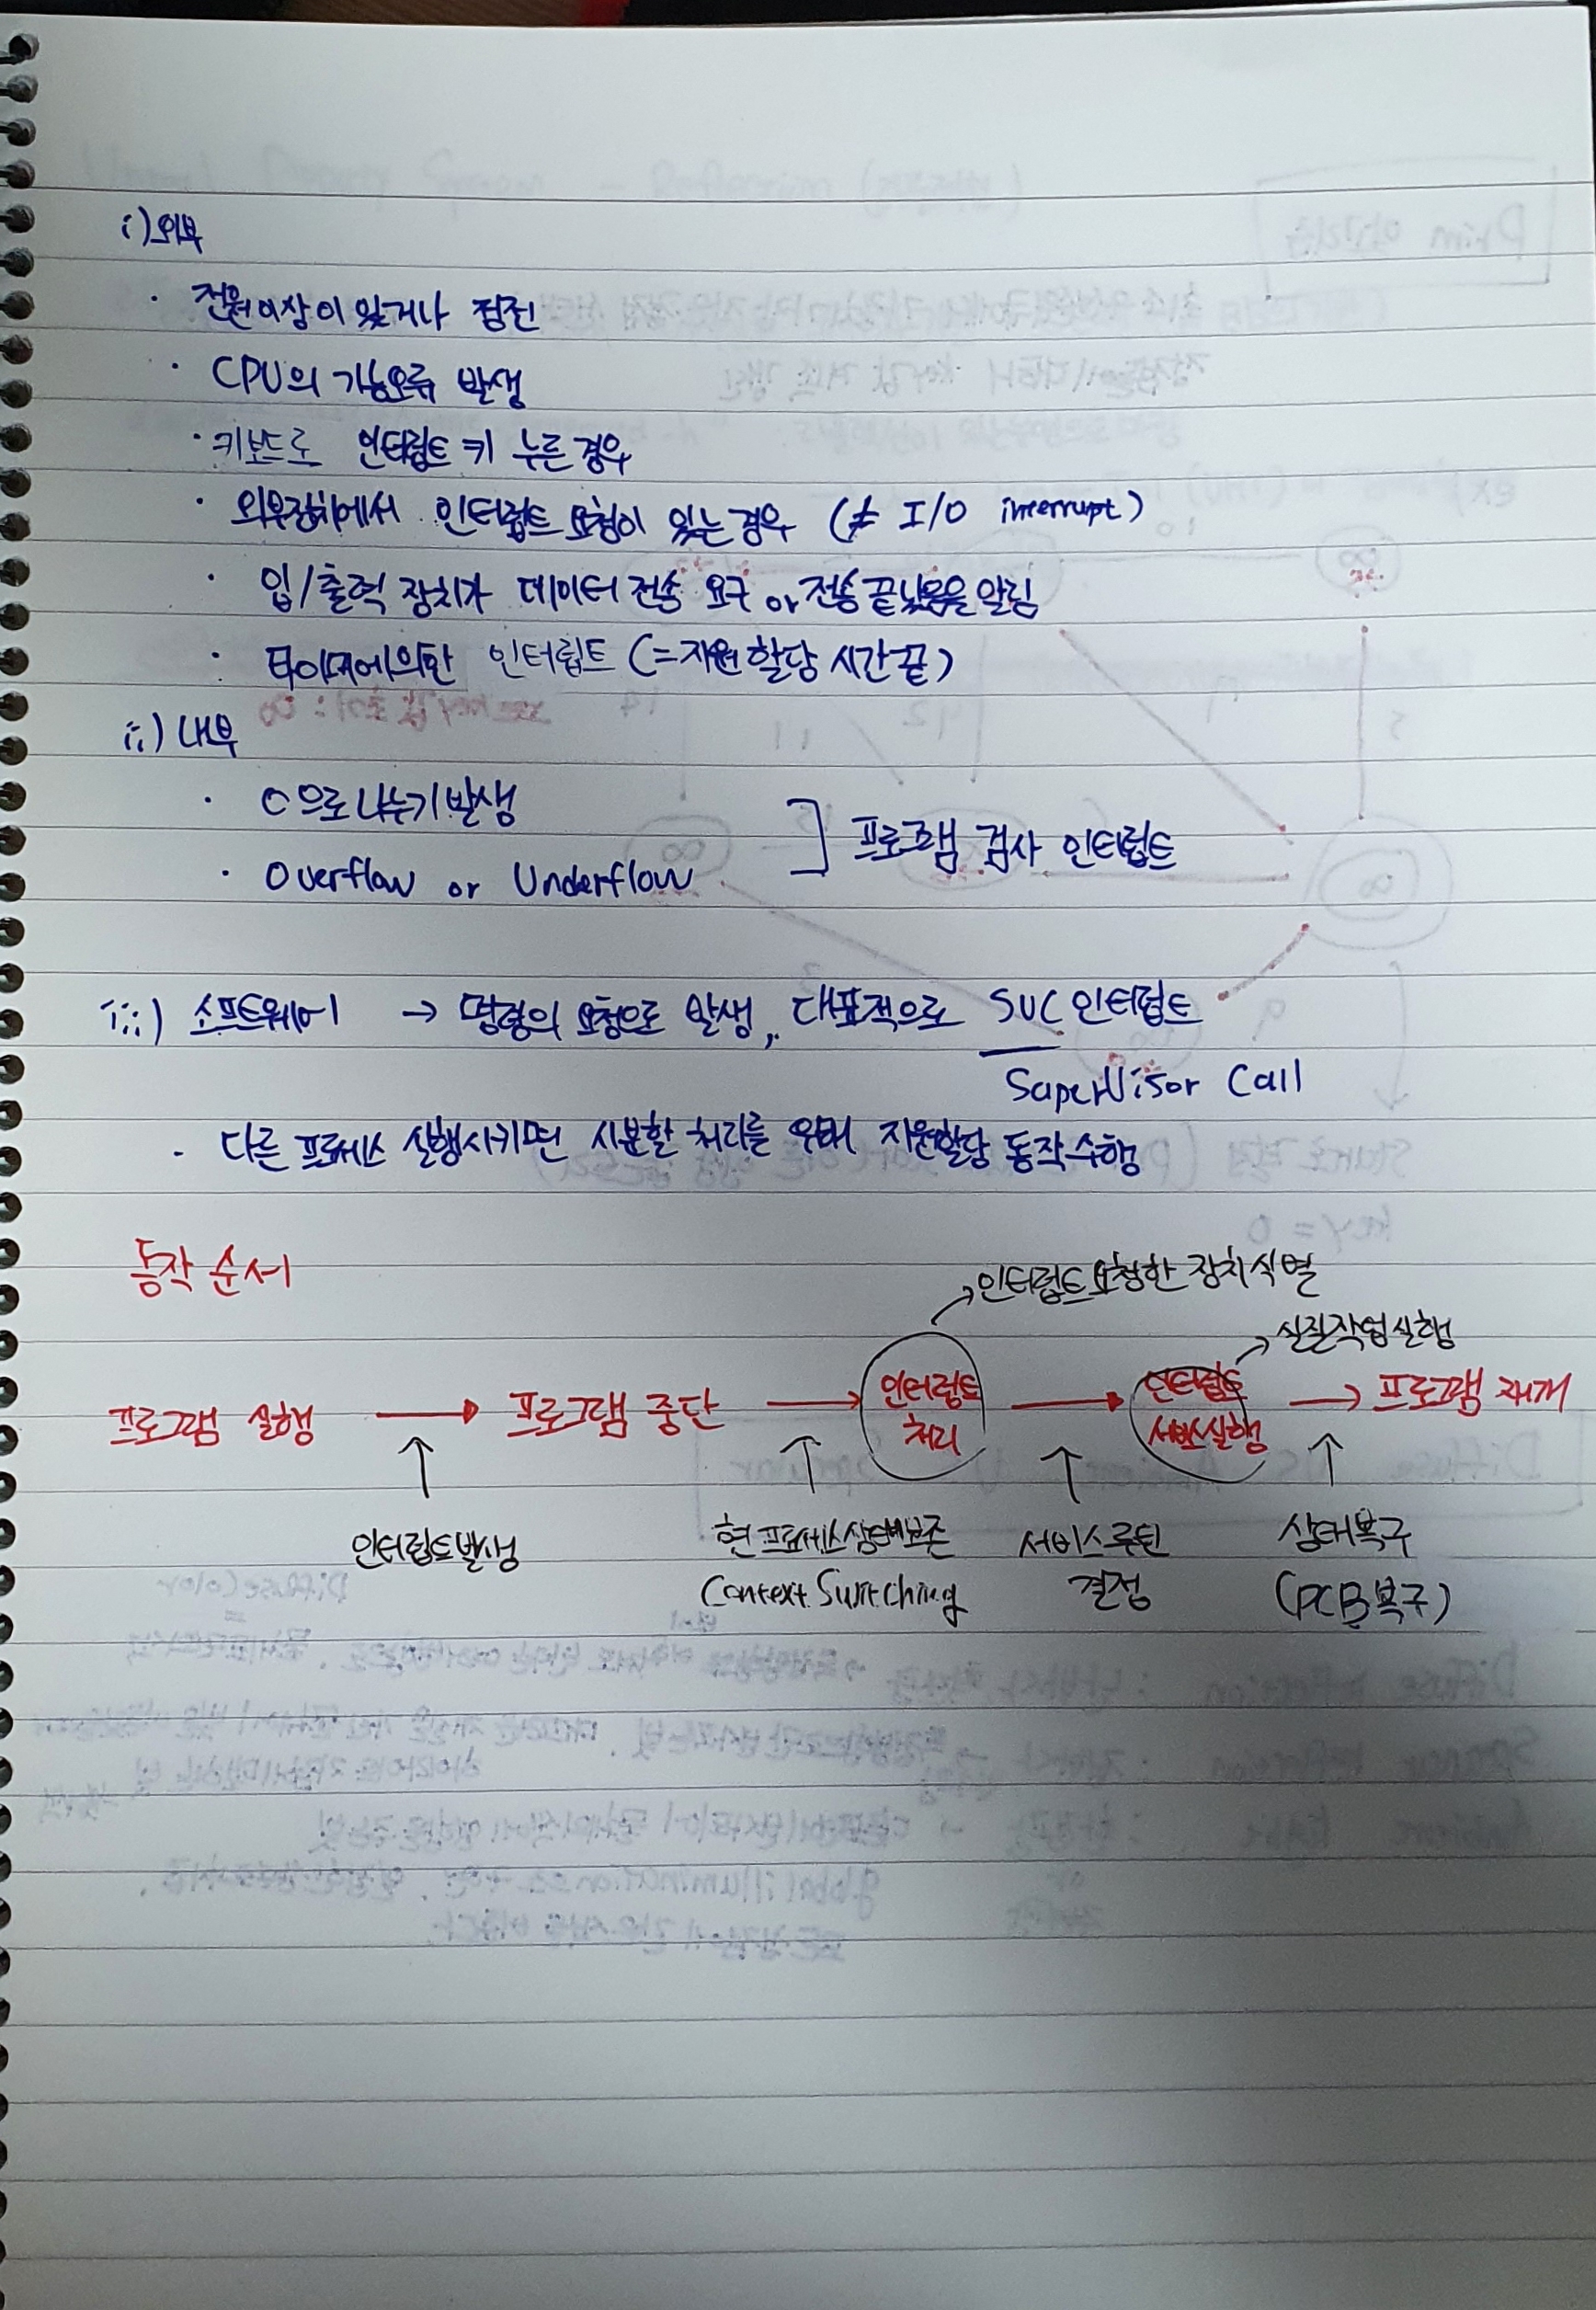 i) 외부
· 전원 이상이 있거나 정전
· CPU의 기능오류 발생
· 키보드로 인터럽트 키 누른 경우
· 외부장치에서 인터럽트 요청이 있는 경우 (≠ I/O interrupt)
· 입/출력 장치가 데이터 전송 요구 or 전송 끝났음을 알림
· 타이머에 의한 인터럽트 (=자원 할당 시간 끝)
ii) 내부
· 0으로 나누기 발생
· Overflow or Underflow
] 프로그램 검사 인터럽트
iii) 소프트웨어 → 명령의 요청으로 발생, 대표적으로 SVC 인터럽트
SuperVisor Call
· 다른 프로세스 실행시키면 시분할 처리를 위해 자원할당 동작 수행
동작 순서
→ 인터럽트 요청한 장치 식별
→ 실질 작업 실행
프로그램 실행 → 프로그램 중단 → 인터럽트 처리 → 인터럽트 서비스 실행 → 프로그램 재개
↑ ↑ ↑ ↑
인터럽트 발생 현 프로세스 상태 보존 서비스 루틴 상태 복구
Context Switching 결정 (PCB 복구)